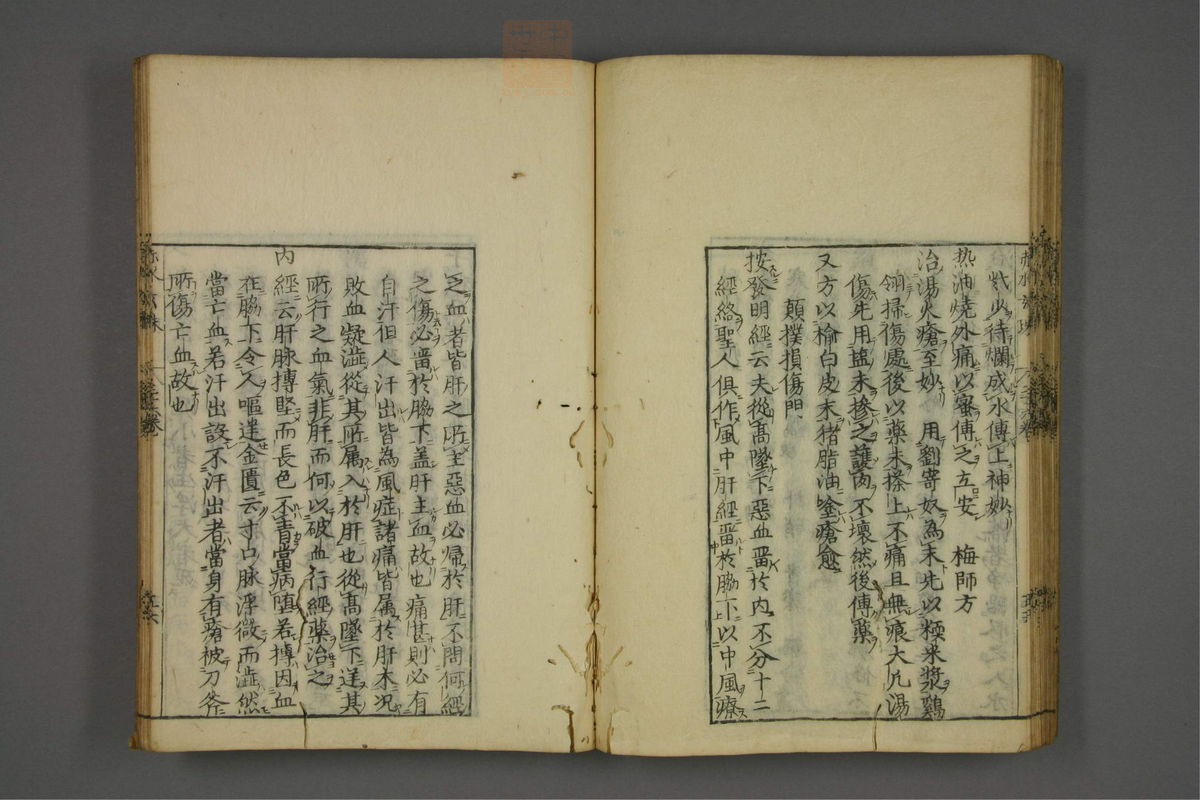 弐火待爛成水傅上神妙
热油燒外痛以蜜傅之立安　梅師方
治湯火瘡至妙　用劉寄奴為末先以糯米漿鷄
翎掃傷處後以藥末摻上不痛且無痕大凡湯
傷先用盐末摻之護肉不壞然後傅藥
又方以榆白皮末猪脂油塗瘡愈
顛撲損傷門
按發明經云夫從髙墜下惡血畱於内不分十二
經絡聖人俱作風中肝經畱於脇下以中風療
之血者皆肝之所主惡血必帰於肝不問何經
之傷必畱於脇下盖肝主血故也痛甚則必有
自汗但人汗出皆為風症諸痛皆属於肝木况
敗血凝澁從其所属入於肝也從髙墜下逆其
所行之血氣非肝而何以破血行經藥治之
内經云肝脉搏堅而長色不青當病墮若搏因血
在脇下令人嘔逆金匱云寸口脉浮微而澁然
當亡血若汗出設不汗出者當身有瘡被刀斧
所傷亡血故也